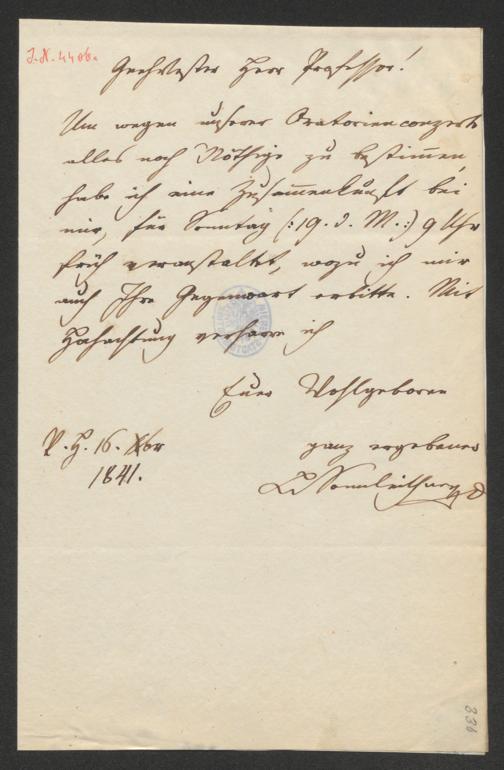 I.N. 4406.
Geehrtester Herr Professor!
Um wegen unserer Oratorienconzerte
alles noch Nöthige zu bestimmen,
habe ich eine Zusammenkunft bei
mir, für Sonntag (:19. d. M.:) 9 Uhr
früh veranstaltet, wozu ich mir
auch Ihre Gegenwart erbitte. Mit
Hochachtung verharre ich
Euer Wohlgeboren
V. H. 16. Xbr
ganz ergebener
1841.
L Sonnleithner
336